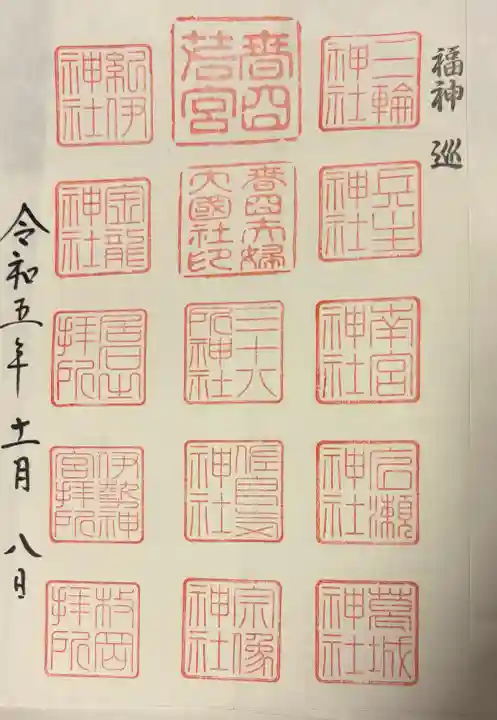 福神巡
三輪神社
兵主神社
南宮神社
広瀬神社
葛城神社
春日若宮
春日夫婦大國社印
三十八所神社
佐良気神社
宗像神社
紀伊神社
金龍神社
春日拝所
伊勢神宮拝所
枚岡拝所
令和五年十一月八日